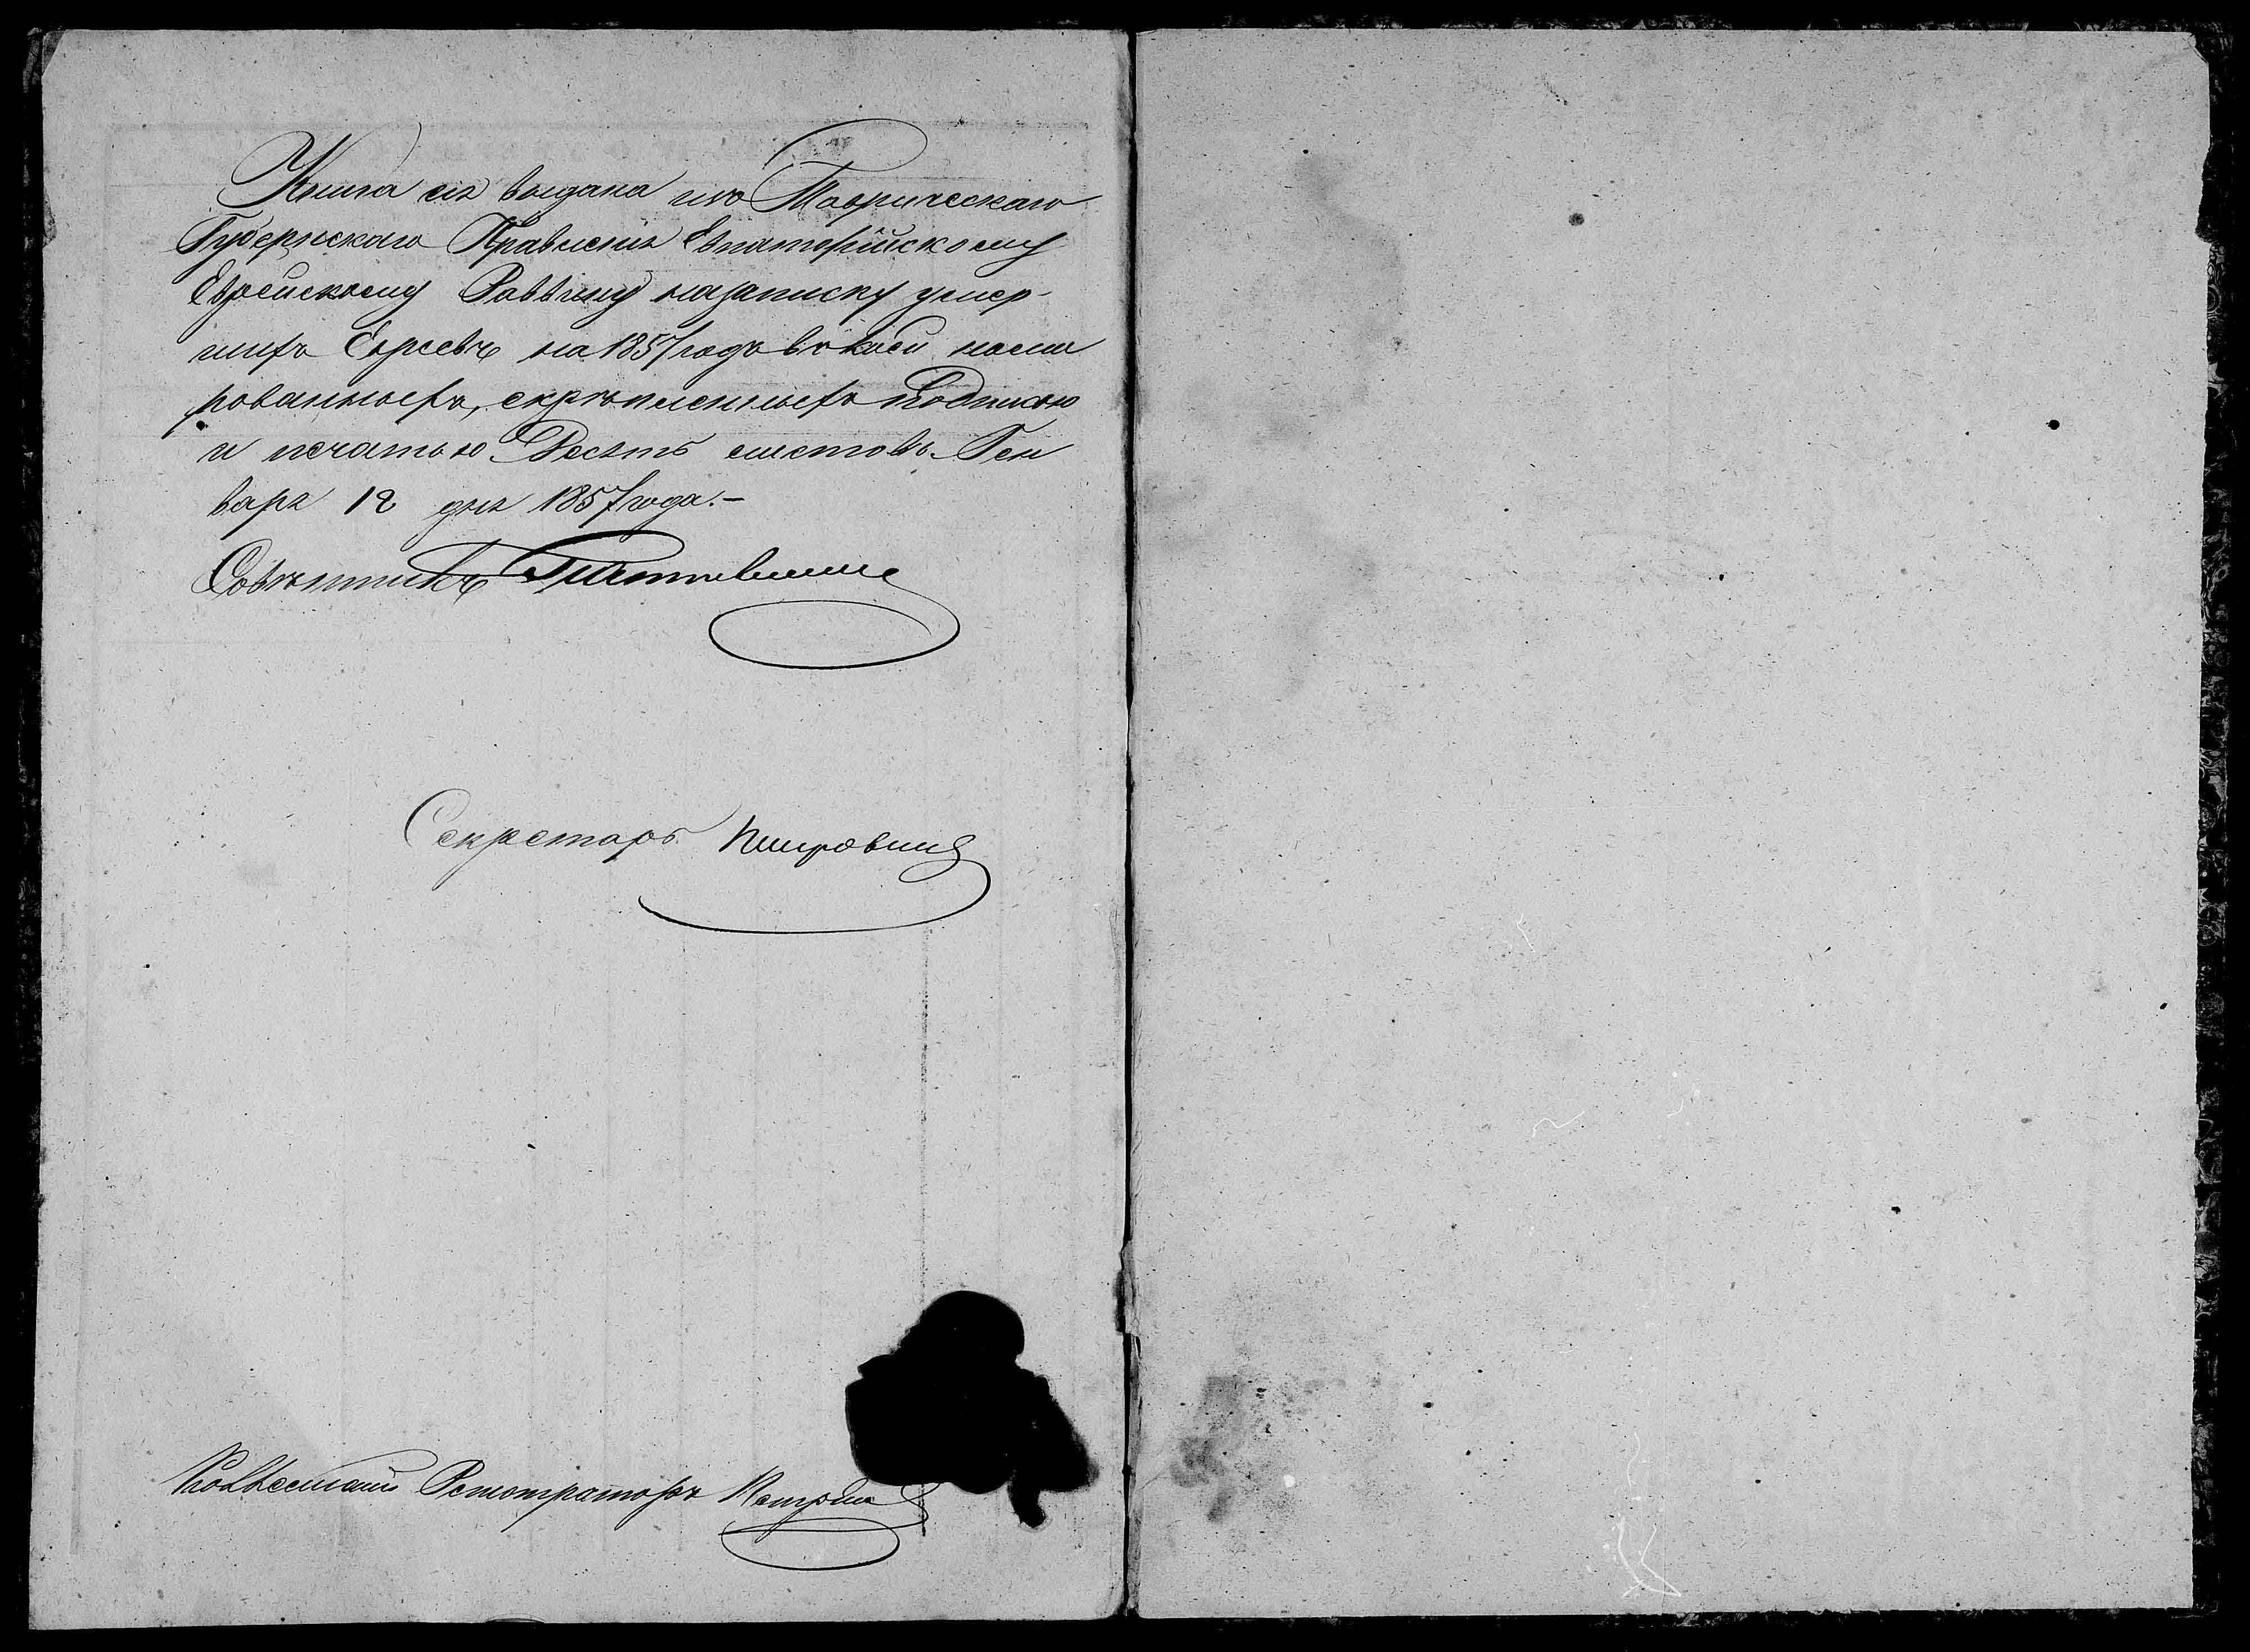 Книга сія выдана изъ Таврическаго
Губернскаго Правленія Евпаторійскому
Еврейскому Раввину на записку умер-
шихъ Евреевъ на 1857 годъ въ коей номе
рованныхъ, скрѣпленныхъ подписью
и печатью Десять листовъ. Ген
варя 12 дня 1857 года.-
Совѣтникъ
Секретарь
Регистраторъ